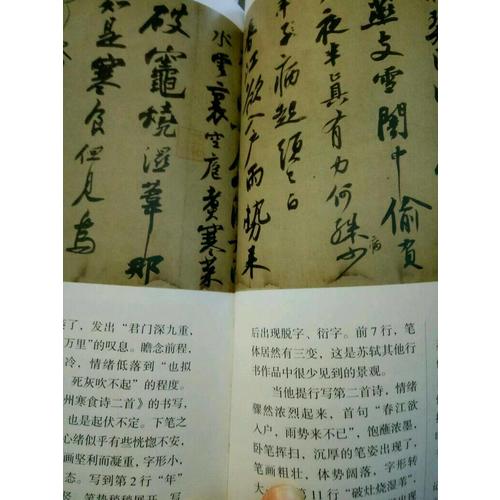 燕支雪闇中偷負
夜半真有力何殊少
病
年子病起須已白
春江欲入戶雨勢來
水雲裏空庖煮寒菜
破竈燒濕葦那
知是寒食但見烏
了，发出“君门深九重，
万里”的叹息。瞻念前程，
冷，情绪低落到“也拟
死灰吹不起”的程度。
州寒食诗二首》的书写，
也是起伏不定。下笔之
心绪似乎有些恍惚不安，
笔画坚利而凝重，字形小，
态。写到第2行“年”
笔势稍稍展开，写
后出现脱字、衍字。前7行，笔
体居然有三变，这是苏轼其他行
书作品中很少见到的景观。
当他提行写第二首诗，情绪
骤然浓烈起来，首句“春江欲
入户，雨势来不已”，饱蘸浓墨，
卧笔挥扫，沉厚的笔姿出现了，
笔画粗壮，体势阔落，字形转
大。
“破灶烧湿苇”，